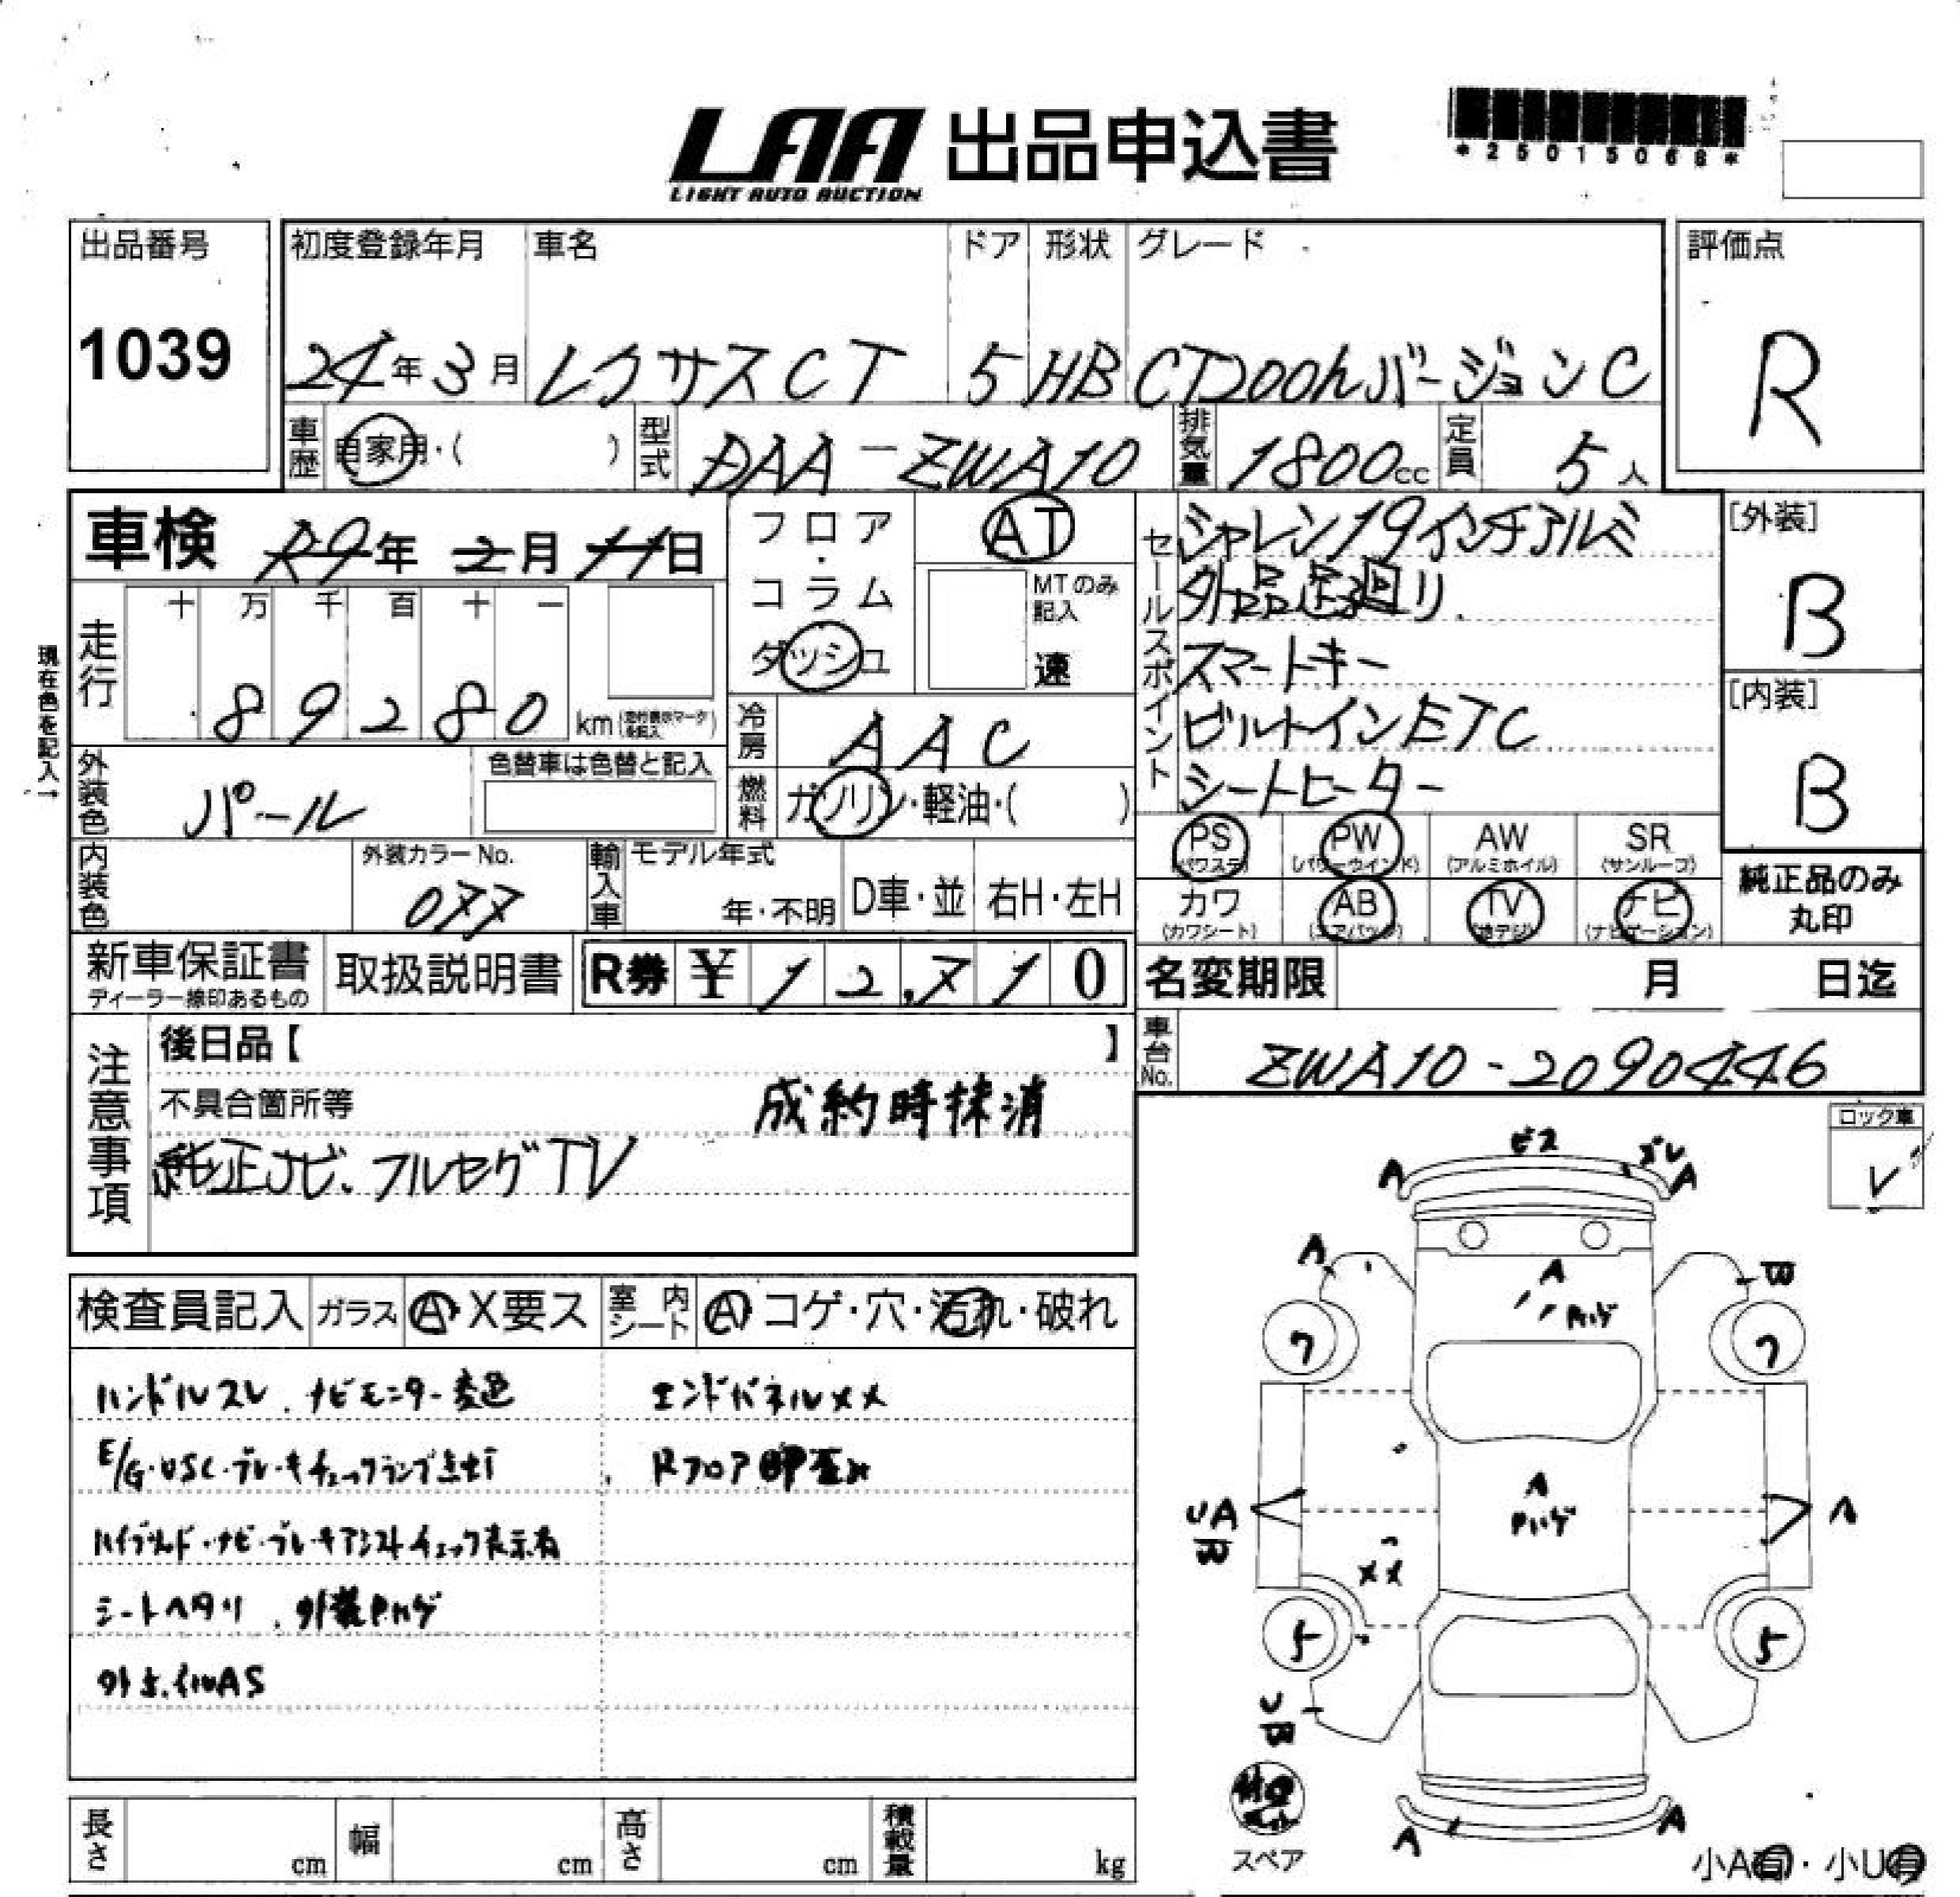 LAA 出品申込書
LIGHT AUTO AUCTION
*25015068*
出品番号 1039
初度登録年月 24年3月
車名 レクサスCT
ドア 5
形状 HB
グレード CT200hバージョンC
評価点 R
車歴 自家用・( )
型式 DAA-ZWA10
排気量 1800cc
定員 5人
車検 R9年2月11日
フロア・コラム ダッシュ
AT
MTのみ記入 速
セールスポイント
シャレン19インチアルミ
外品足廻り
スマートキー
ビルトインETC
シートヒーター
[外装] B
[内装] B
現在色を記入→
走行 十 万 千 百 十 一
89280 km
冷房 AAC
外装色 パール
色替車は色替と記入
燃料 ガソリン・軽油・( )
PS (パワステ) PW (パワーウインド) AW (アルミホイル) SR (サンルーフ)
カワ (カワシート) AB (エアバック) TV (地デジ) ナビ (ナビゲーション)
純正品のみ丸印
内装色
外装カラーNo. 077
輸入車 モデル年式 年・不明 D車・並 右H・左H
新車保証書 ディーラー線印あるもの
取扱説明書
R券 ¥12,710
名変期限 月 日迄
車台No. ZWA10-2090446
注意事項
後日品【 】
不具合箇所等 成約時抹消
純正ナビ、フルセグTV
ロック車 レ
検査員記入 ガラス A・X要ス 室内シート A コゲ・穴・汚れ・破れ
ハンドルスレ、ナビモニター変色
エンドパネルXX
E/G・VSC・ブレーキチェックランプ点灯
Rフロア凹歪み
ハイブリッド・ナビ・ブレーキアシストチェック表示有
シートヘタリ、外装Pハゲ
外よ、
ビス ズレ
A A
A B
A
Pハゲ
7 7
A
Pハゲ
UA
B
A
XX
5 5
U
B
スペア
A A
小A有・小U有
長さ cm 幅 cm 高さ cm 積載量 kg